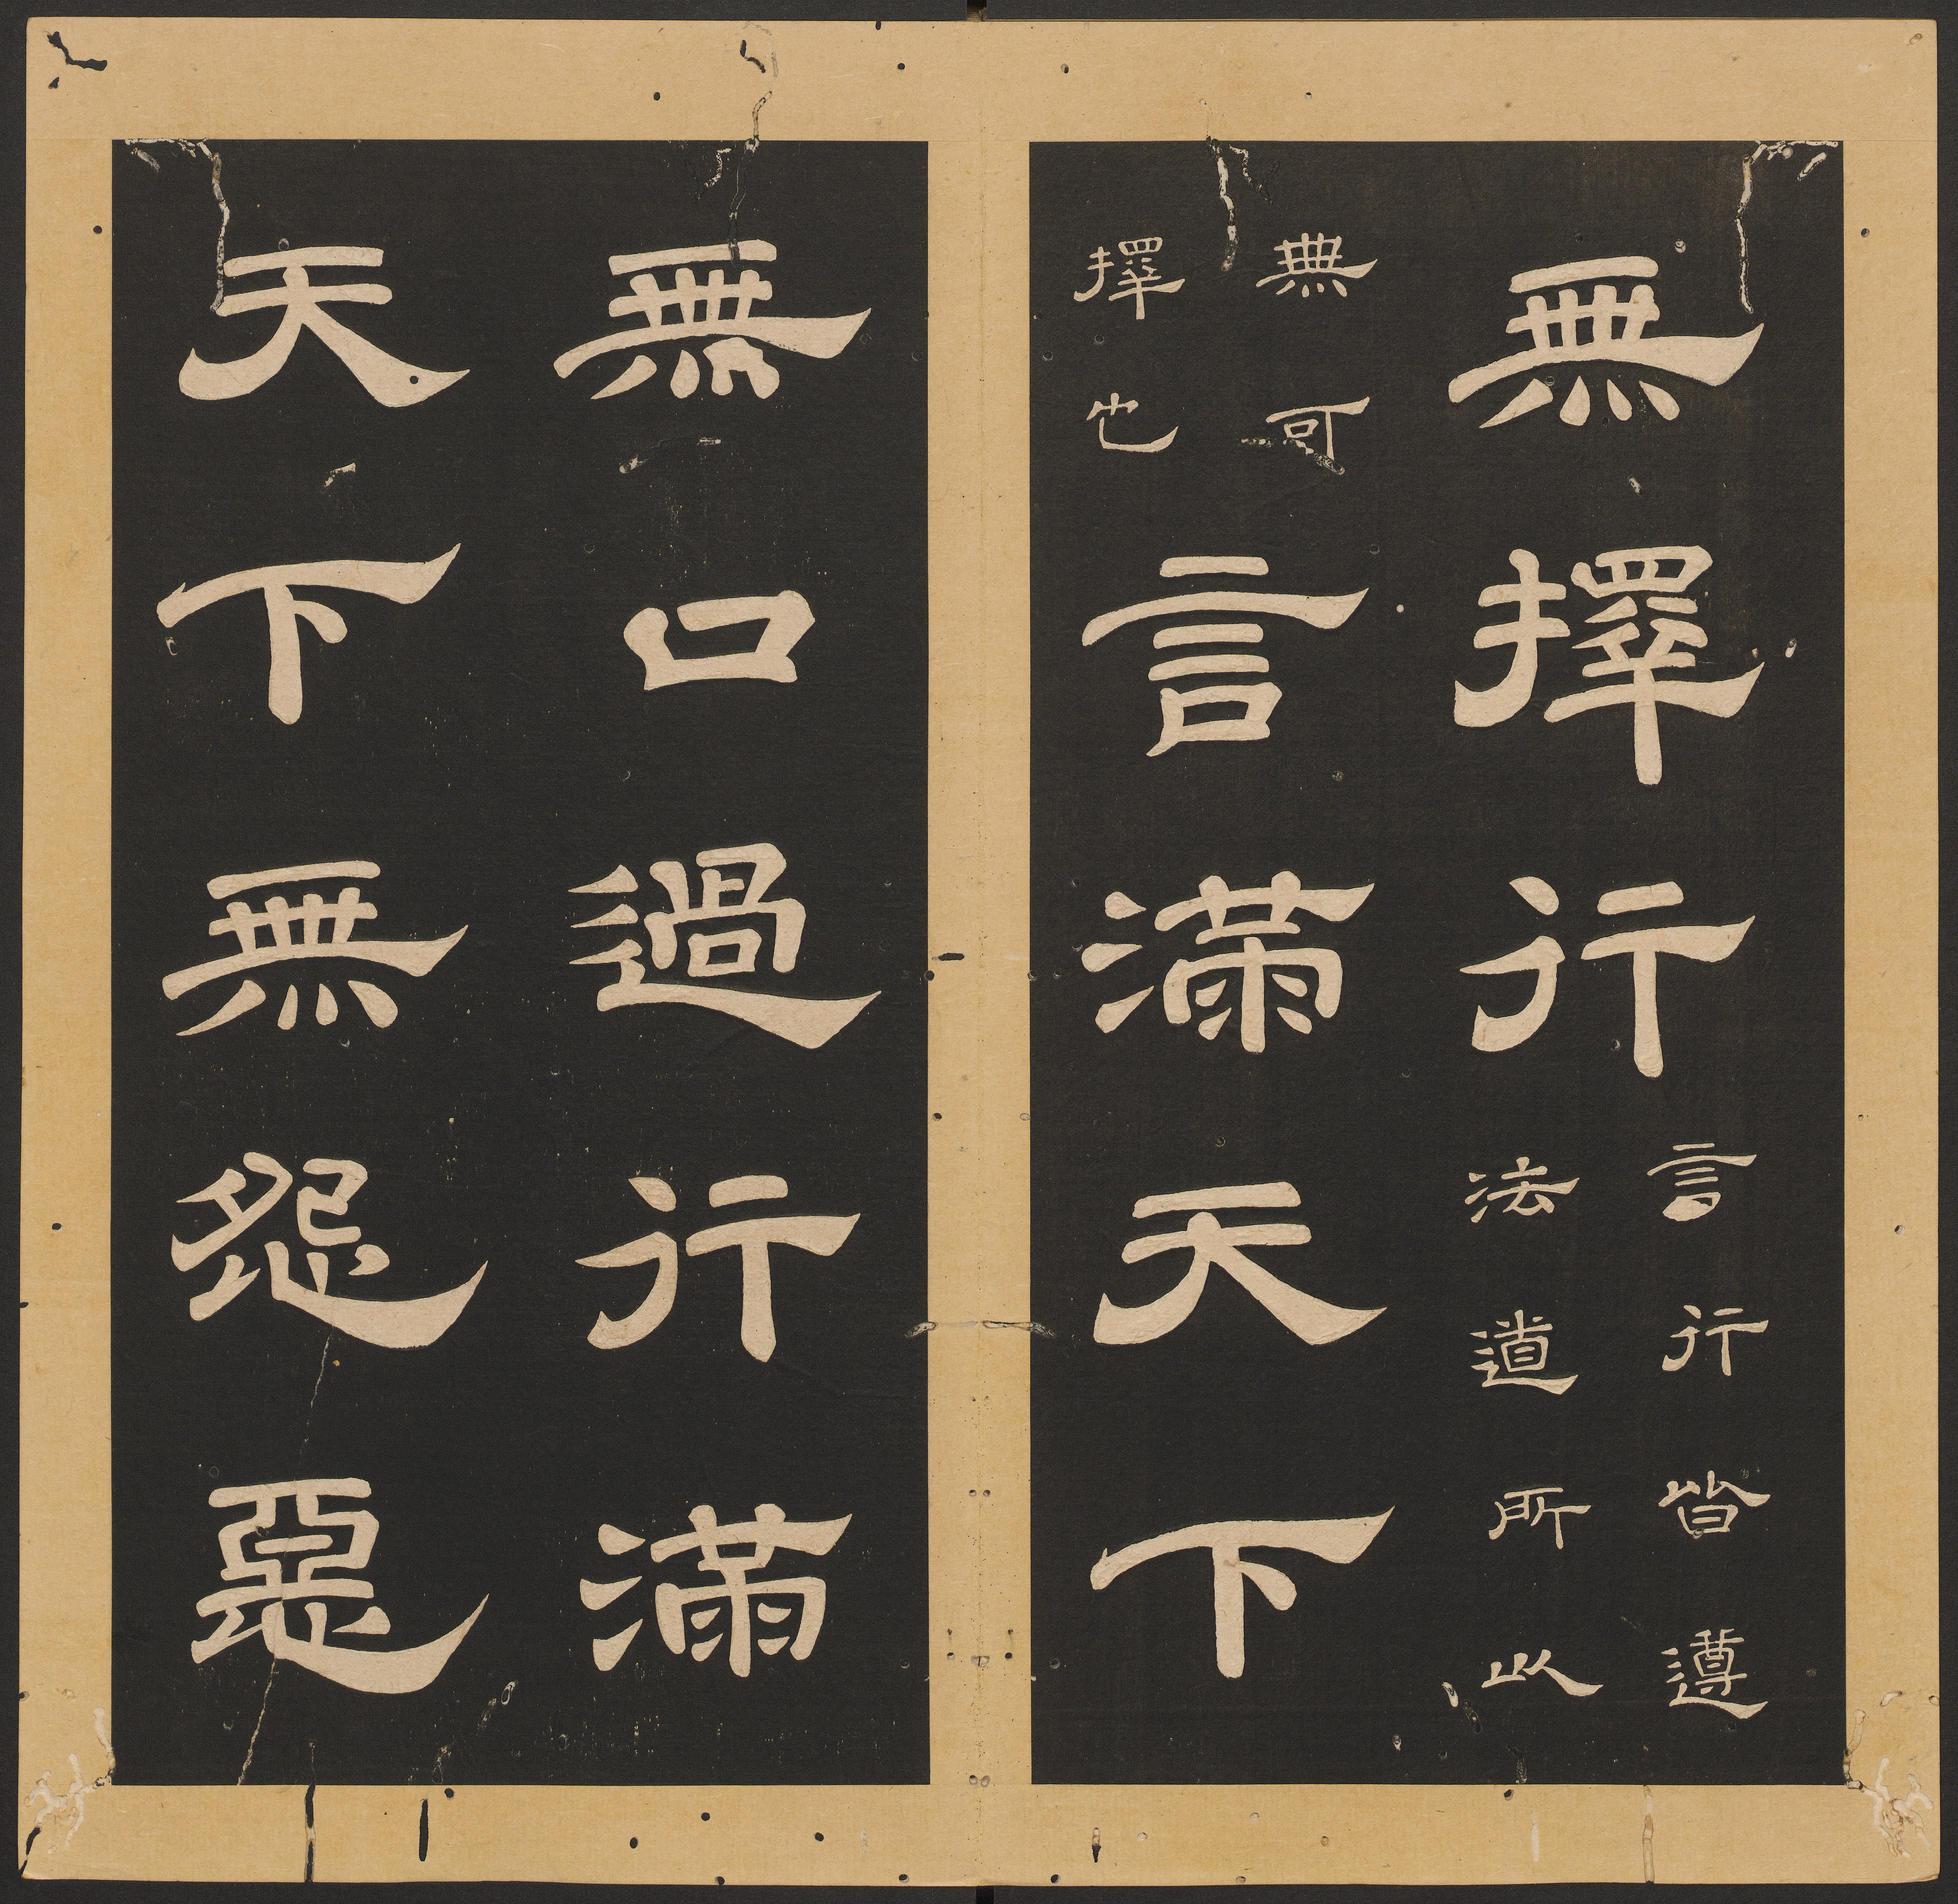 無擇行言行皆遵
法道所以
無可
擇也言滿天下
無口過行滿
天下無怨惡